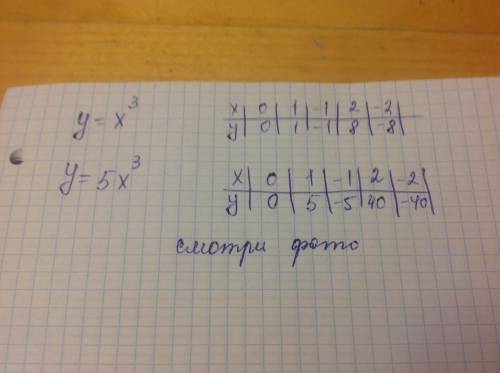 y = x³
x | 0 | 1 | -1 | 2 | -2 |
y | 0 | 1 | -1 | 8 | -8 |
y = 5x³
x | 0 | 1 | -1 | 2 | -2 |
y | 0 | 5 | -5 | 40 | -40 |
смотри фото